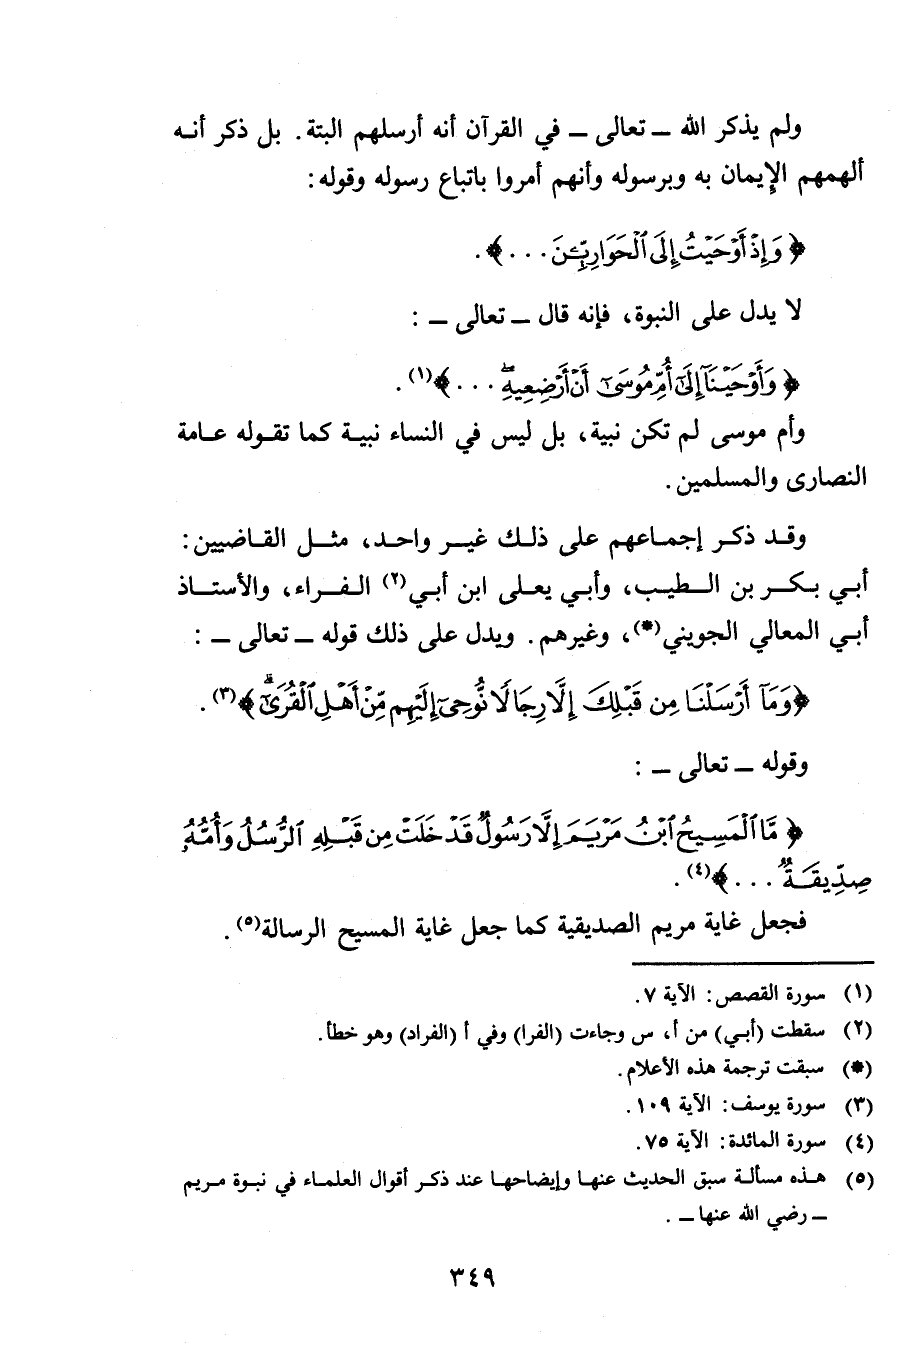 ولم يذكر الله ــ تعالى ــ في القرآن أنه أرسلهم البتة. بل ذكر أنه
ألهمهم الإيمان به وبرسوله وأنهم أمروا باتباع رسوله وقوله:
﴿ وَإِذْ أَوْحَيْتُ إِلَى ٱلْحَوَارِيِّـۧنَ . . . ﴾ .
لا يدل على النبوة، فإنه قال ــ تعالى ــ :
﴿ وَأَوْحَيْنَآ إِلَىٰٓ أُمِّ مُوسَىٰٓ أَنْ أَرْضِعِيهِۖ . . . ﴾(١) .
وأم موسى لم تكن نبية، بل ليس في النساء نبية كما تقوله عامة
النصارى والمسلمين.
وقد ذكر إجماعهم على ذلك غير واحد، مثل القاضيين:
أبي بكر بن الطيب، وأبي يعلى ابن أبي(٢) الفراء، والأستاذ
أبي المعالي الجويني(*)، وغيرهم. ويدل على ذلك قوله ــ تعالى ــ :
﴿وَمَآ أَرْسَلْنَا مِن قَبْلِكَ إِلَّا رِجَالًا نُّوحِىٓ إِلَيْهِم مِّنْ أَهْلِ ٱلْقُرَىٰٓۗ ﴾(٣) .
وقوله ــ تعالى ــ :
﴿ مَّا ٱلْمَسِيحُ ٱبْنُ مَرْيَمَ إِلَّا رَسُولٌ قَدْ خَلَتْ مِن قَبْلِهِ ٱلرُّسُلُ وَأُمُّهُۥ
صِدِّيقَةٌۖ . . . ﴾(٤) .
فجعل غاية مريم الصديقية كما جعل غاية المسيح الرسالة(٥) .
(١) سورة القصص: الآية ٧.
(٢) سقطت (أبي) من أ، س وجاءت (الفرا) وفي أ (الفراد) وهو خطأ.
(*) سبقت ترجمة هذه الأعلام.
(٣) سورة يوسف: الآية ١٠٩.
(٤) سورة المائدة: الآية ٧٥.
(٥) هذه مسألة سبق الحديث عنها وإيضاحها عند ذكر أقوال العلماء في نبوة مريم
ــ رضي الله عنها ــ .
٣٤٩